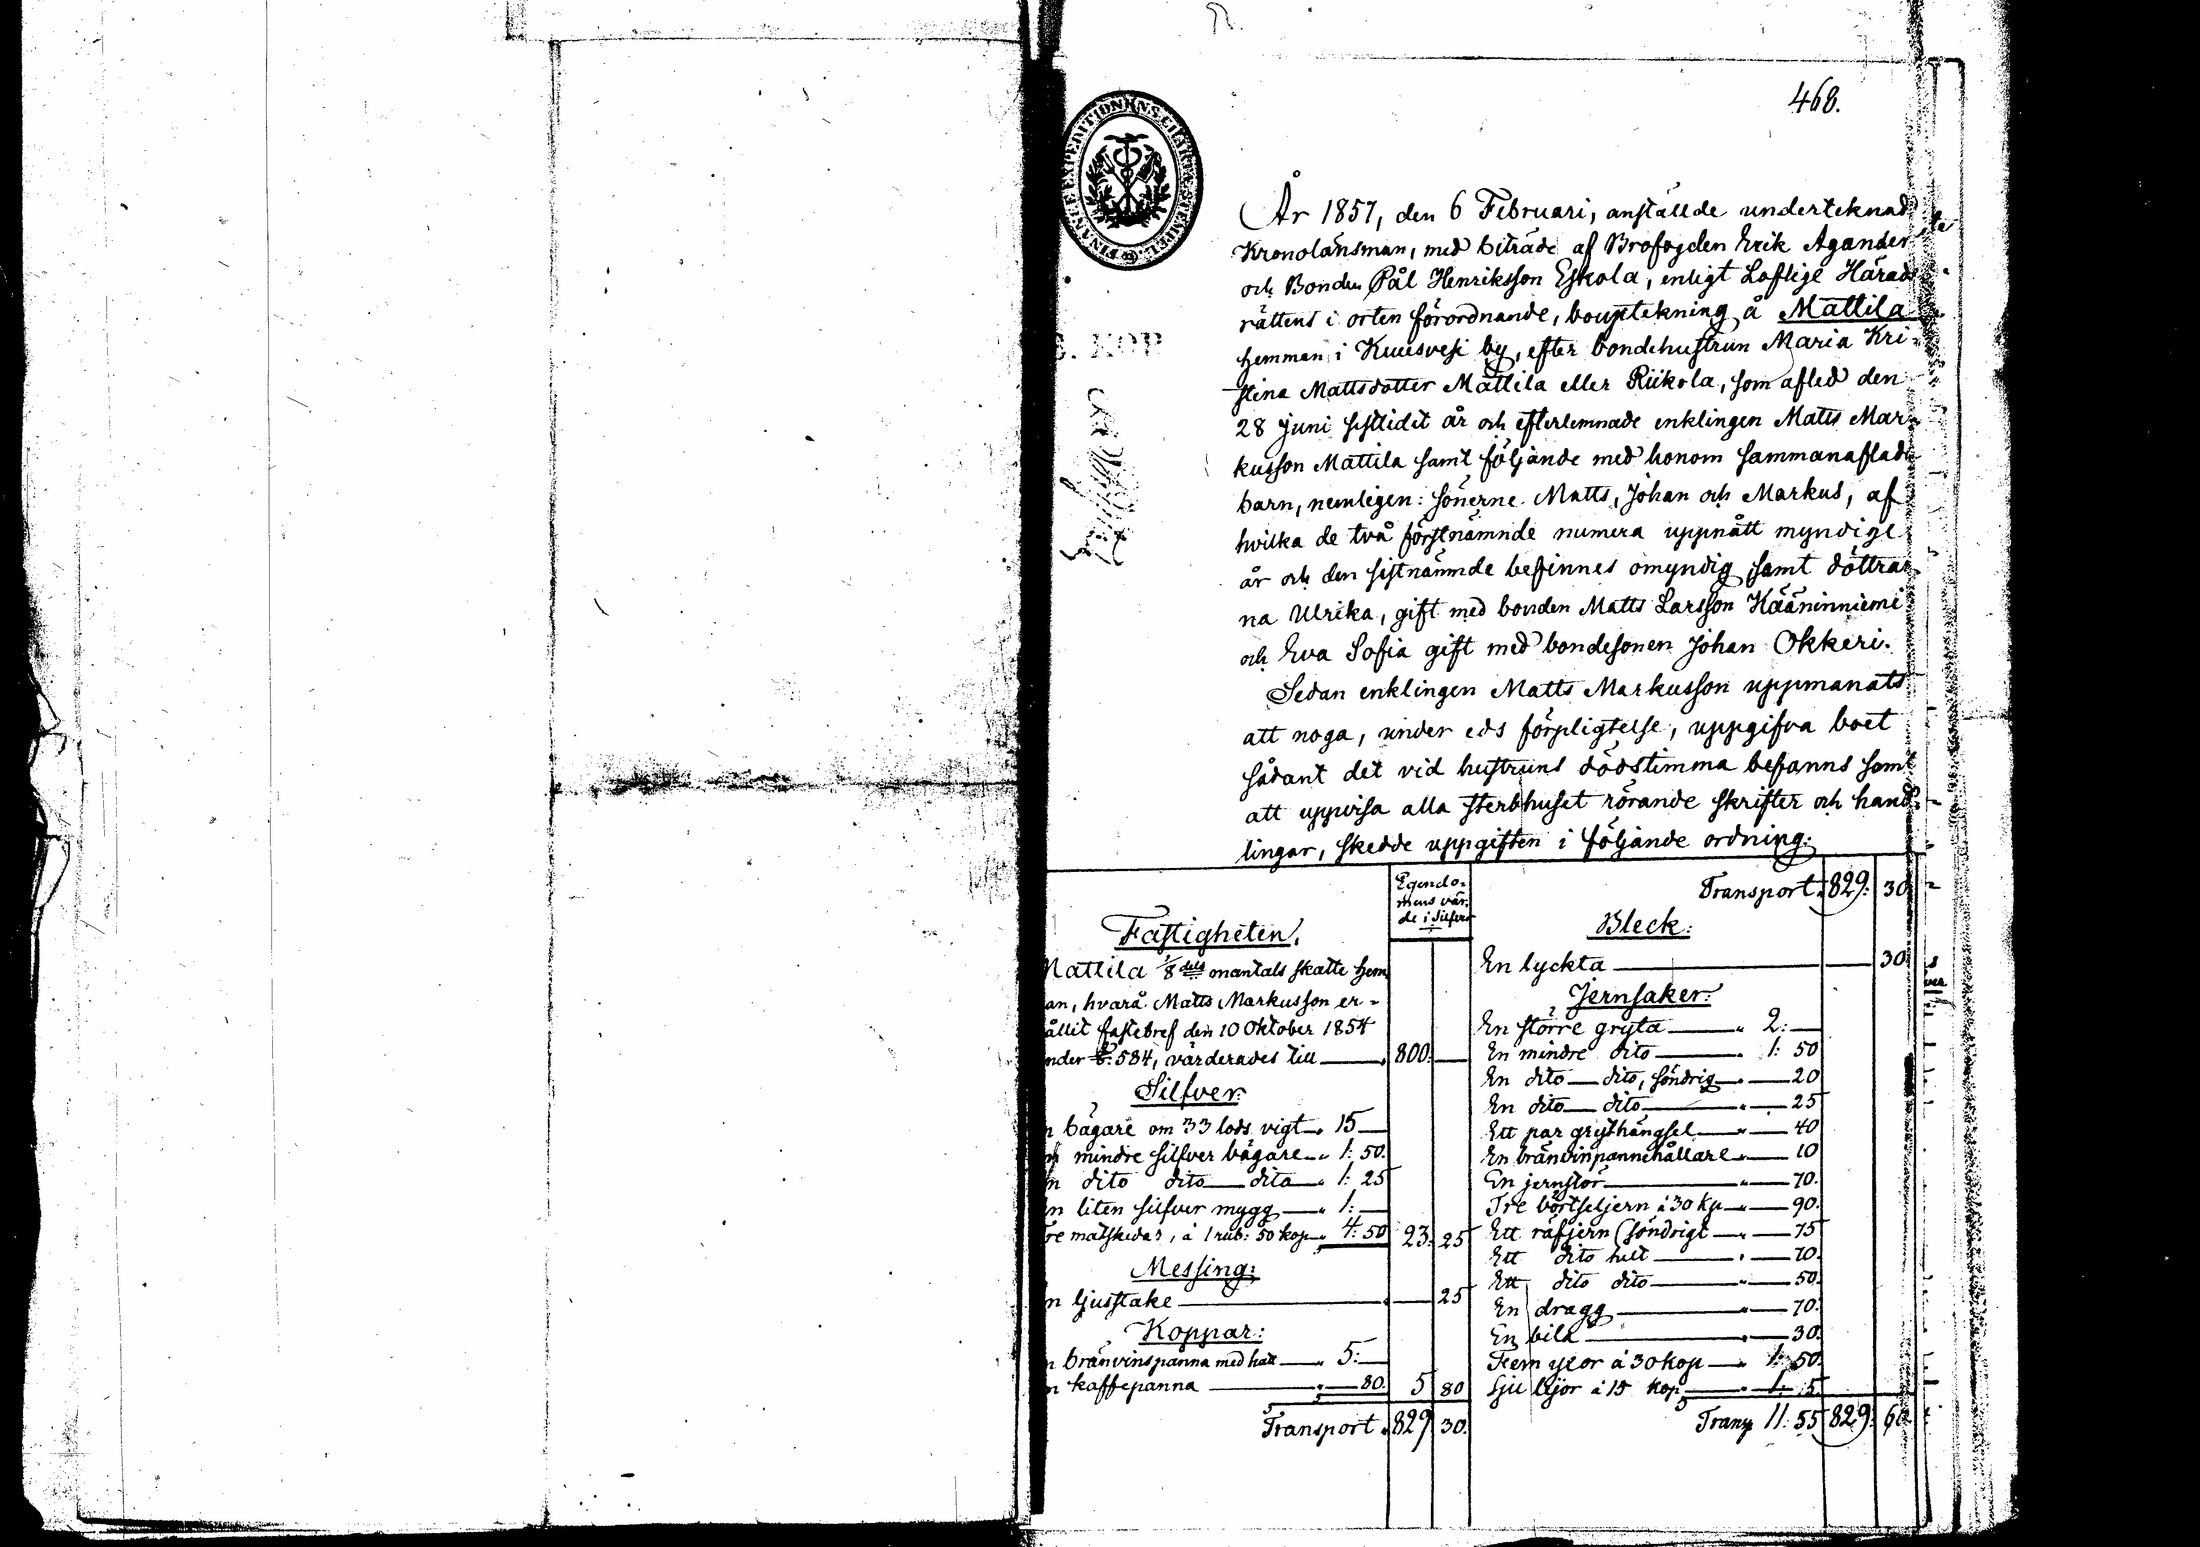 468.
FINANCE EXPEDITIONENS CHARTÆ STEMPEL
År 1857, den 6 Februari, anställde undertecknad
Kronolänsman, med biträde af Brofogden Erik Agander
och Bonden Pål Henriksson Eskola, enligt Loflige Härads
rättens i orten förordnande, bouptekning å Mattila
hemman i Kuusvesi by, efter bondehustrun Maria Kri-
stina Mattsdotter Mattila eller Riikola, som afled den
28 Juni sistlidet år och efterlemnade enklingen Matts Mar-
kusson Mattila samt följande med honom sammanaflade
barn, nemligen: sönerne Matts, Johan och Markus, af
hvilka de två förstnämnde numera uppnått myndige
år och den sistnämnde befinnes omyndig samt döttrar
na Ulrika, gift med bonden Matts Larsson Kääninniemi
och Eva Sofia gift med bondesonen Johan Okkeri.
Sedan enklingen Matts Markusson uppmanats
att noga, under eds förpligtelse, uppgifva boet
sådant det vid hustruns dödstimma befanns samt
att uppvisa alla sterbhuset rörande skrifter och hand-
lingar, skedde uppgiften i följande ordning:
Egendo-
mens vär-
de i Silfver
Fastigheten.
Mattila 1/8 dels mantals skatte hem
an, hvarå Matts Markusson er-
ållit fastebref den 10 Oktober 1854
nder §: 584, värderades till 800.
Silfver.
n bägare om 33 lods vigt 15
n mindre silfver bägare 1: 50.
n dito dito dito 1: 25
n liten silfver mygg 1:
re matskedar, à 1 rub: 50 kop 4: 50 23: 25
Messing:
n ljusstake 25
Koppar:
n bränvinspanna med hatt 5:
n kaffepanna 80. 5 80
Transport. 829 30.
Transport. 829: 30
Bleck:
En lyckta 30
Jernsaker:
En större gryta 2:
En mindre dito 1: 50
En dito dito, söndrig 20
En dito dito 25
Ett par grythängsel 40
En bränvinpannehållare 10
En jernstör 70.
Tre börtseljern à 30 kp 90.
Ett räfjern (söndrigt 75
Ett dito helt 70.
Ett dito dito 50.
En dragg 70.
En bila 30.
Fem yxor à 30 kop 1: 50.
Sju lijor à 15 kop 1: 5
Transp 11: 55 829: 60